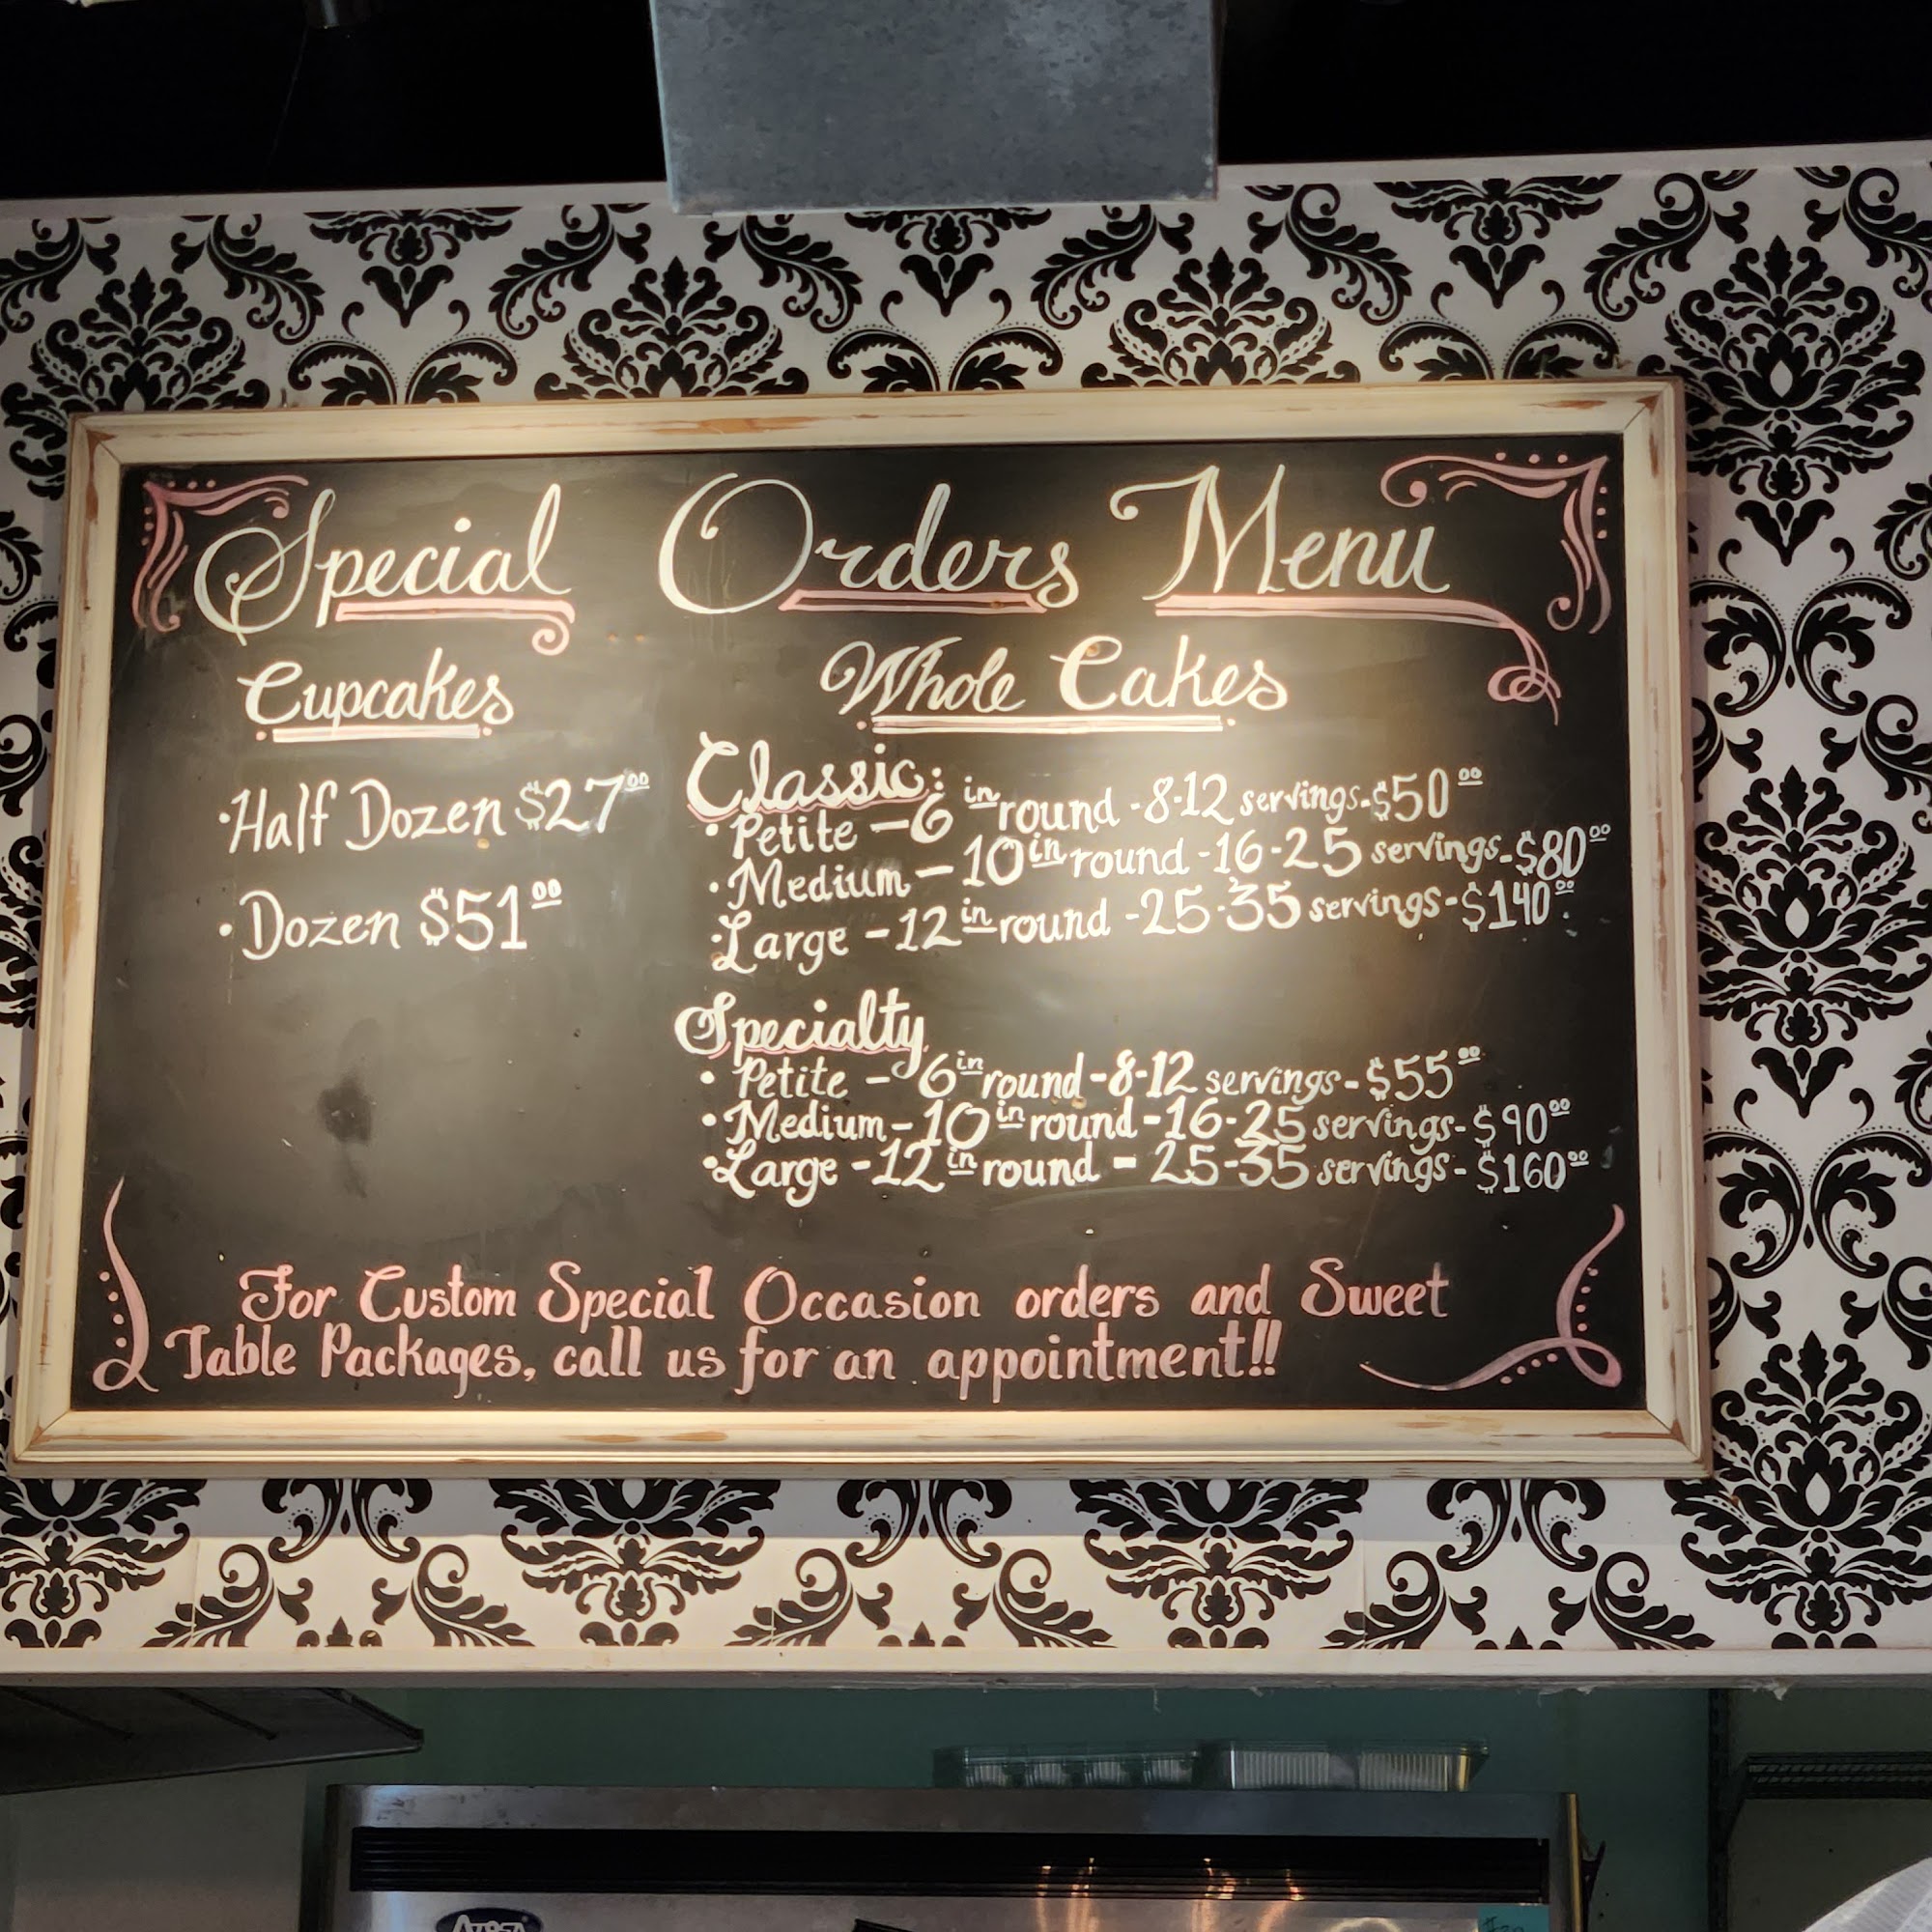 Special Orders Menu
Cupcakes
·Half Dozen $27.00
·Dozen $51.00
Whole Cakes
Classic:
·Petite – 6 in round - 8-12 servings - $50.00
·Medium – 10 in round - 16-25 servings - $80.00
·Large – 12 in round - 25-35 servings - $140.00
Specialty
·Petite – 6 in round - 8-12 servings - $55.00
·Medium – 10 in round - 16-25 servings - $90.00
·Large – 12 in round - 25-35 servings - $160.00
For Custom Special Occasion orders and Sweet
Table Packages, call us for an appointment!!
Atosa